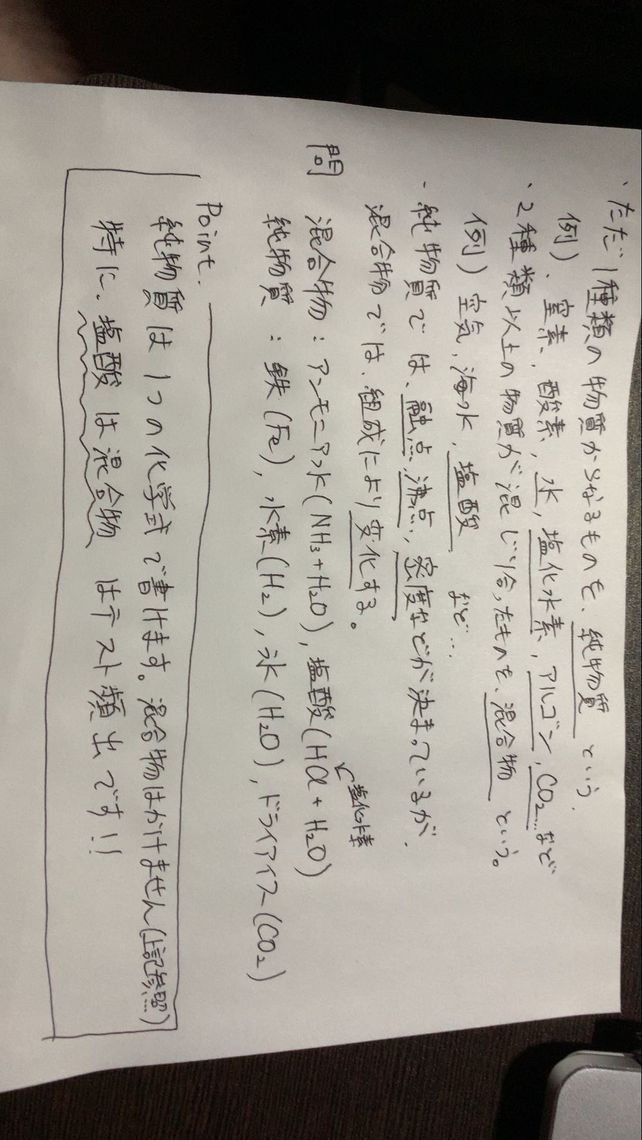 ・ただ1種類の物質からなるものを、純物質 という.
例）、窒素、酸素、水，塩化水素，アルゴン，CO2…など
・2種類以上の物質が混じり合ったものを、混合物 という。
例）空気，海水，塩酸 など…
・純物質では、融点，沸点，密度などが決まっているが、
混合物では、組成により変化する。
問 混合物：アンモニア水(NH3+H2O)，塩酸(HCl+H2O)
塩化水素
純物質：鉄(Fe)，水素(H2)，氷(H2O)，ドライアイス(CO2)
Point.
純物質は1つの化学式で書けます。混合物はかけません(上記参照)
特に、塩酸は混合物 はテスト頻出です!!